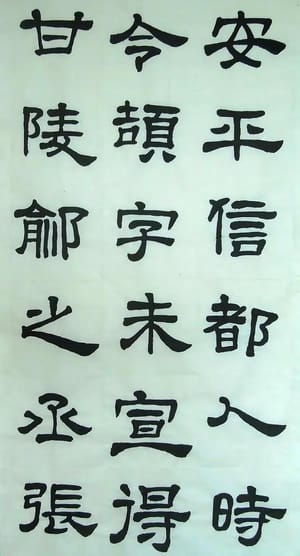 安平信都人時
令頡字未宣得
甘陵鄃之丞張